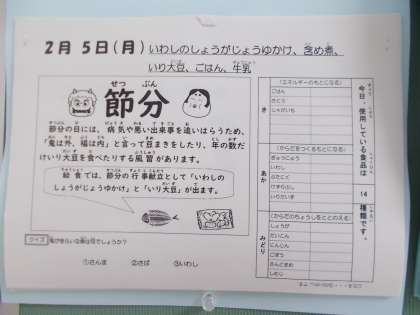 2月 5日(月) いわしのしょうがじょうゆかけ、含め煮、
いり大豆、ごはん、牛乳
せつ ぶん
節分
節分の日には、病気や悪い出来事を追いはらうため、
「鬼は外、福は内」と言って豆まきをしたり、年の数だ
けいり大豆を食べたりする風習があります。
給食では、節分の行事献立として「いわしの
しょうがじょうゆかけ」と「いり大豆」が出ます。
クイズ
①さんま ②さば ③いわし
今日、使用している食品は 14 種類です。
き
(エネルギーのもとになる)
ごはん
さとう
じゃがいも
あか
(からだをつくるもとになる)
ぎゅうにゅう
いわし
ぶたにく
いりだいず
みどり
(からだのちょうしをととのえる)
しょうが
だいこん
にんじん
ごぼう
さんどまめ